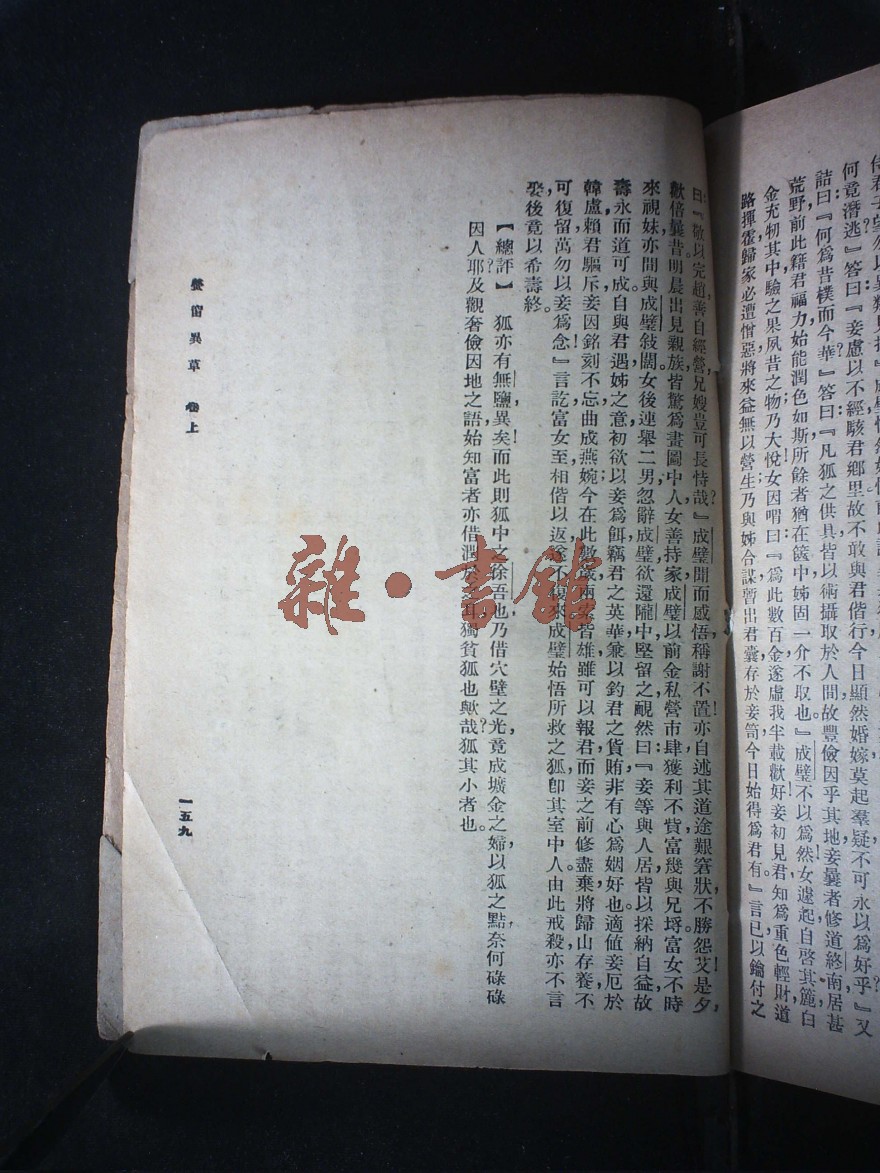 何竟潛逃』答曰『妾慮以不經駭君鄉里故不敢與君偕行今日顯然婚嫁莫起羣疑不可永以爲好乎？』又
詰曰：『何爲昔樸而今華？』答曰：『凡狐之供具皆以術攝取於人間故豐儉因乎其地妾曩者修道終南居甚
荒野前此籍君福力始能潤色如斯所餘者猶在篋中姊固一介不取也』成璧不以爲然女遽起自啓其簏白
金充牣其中驗之果夙昔之物乃大悅女因喟曰：『爲此數百金遂虛我半載歡好妾初見君知爲重色輕財道
路揮霍歸家必遭憎惡將來益無以營生乃與姊合謀暫出君囊存於妾笥今日始得爲君有。』言已以鑰付之
曰：『敬以完趙善自經營兄嫂豈可長恃哉？』成璧聞而感悟稱謝不置亦自述其道途艱窘狀不勝怨艾是夕，
歡倍曩昔明晨出見親族皆驚爲畫圖中人女善持家成璧以前金私營市肆獲利不貲富幾與兄埒富女不時
來視妹亦間與成璧敍闊女後連舉二男忽辭成璧欲還隴中堅留之靦然曰：『妾等與人居皆以採納自益故
壽永而道可成自與君遇姊之意初欲以妾爲餌竊君之英華兼以釣君之貨賄非有心爲姻好也適値妾厄於
韓盧賴君驅斥妾因銘刻不忘曲成燕婉今在此數歲兩 皆雄雖可以報君而妾之前修盡棄將歸山存養不
可復留萬勿以妾爲念』言訖富女至相偕以返遂不復來成璧始悟所救之狐卽其室中人由此戒殺亦不言
娶後竟以希壽終。
【總評】 狐亦有無鹽異矣而此則狐中之徐吾也乃借穴壁之光竟成壙金之婦以狐之點奈何碌碌
因人耶及觀奢儉因地之語始知富者亦借潤於 耳獨貧狐也歟哉狐其小者也。
螢窗異草 卷上
一五九
雜·書館